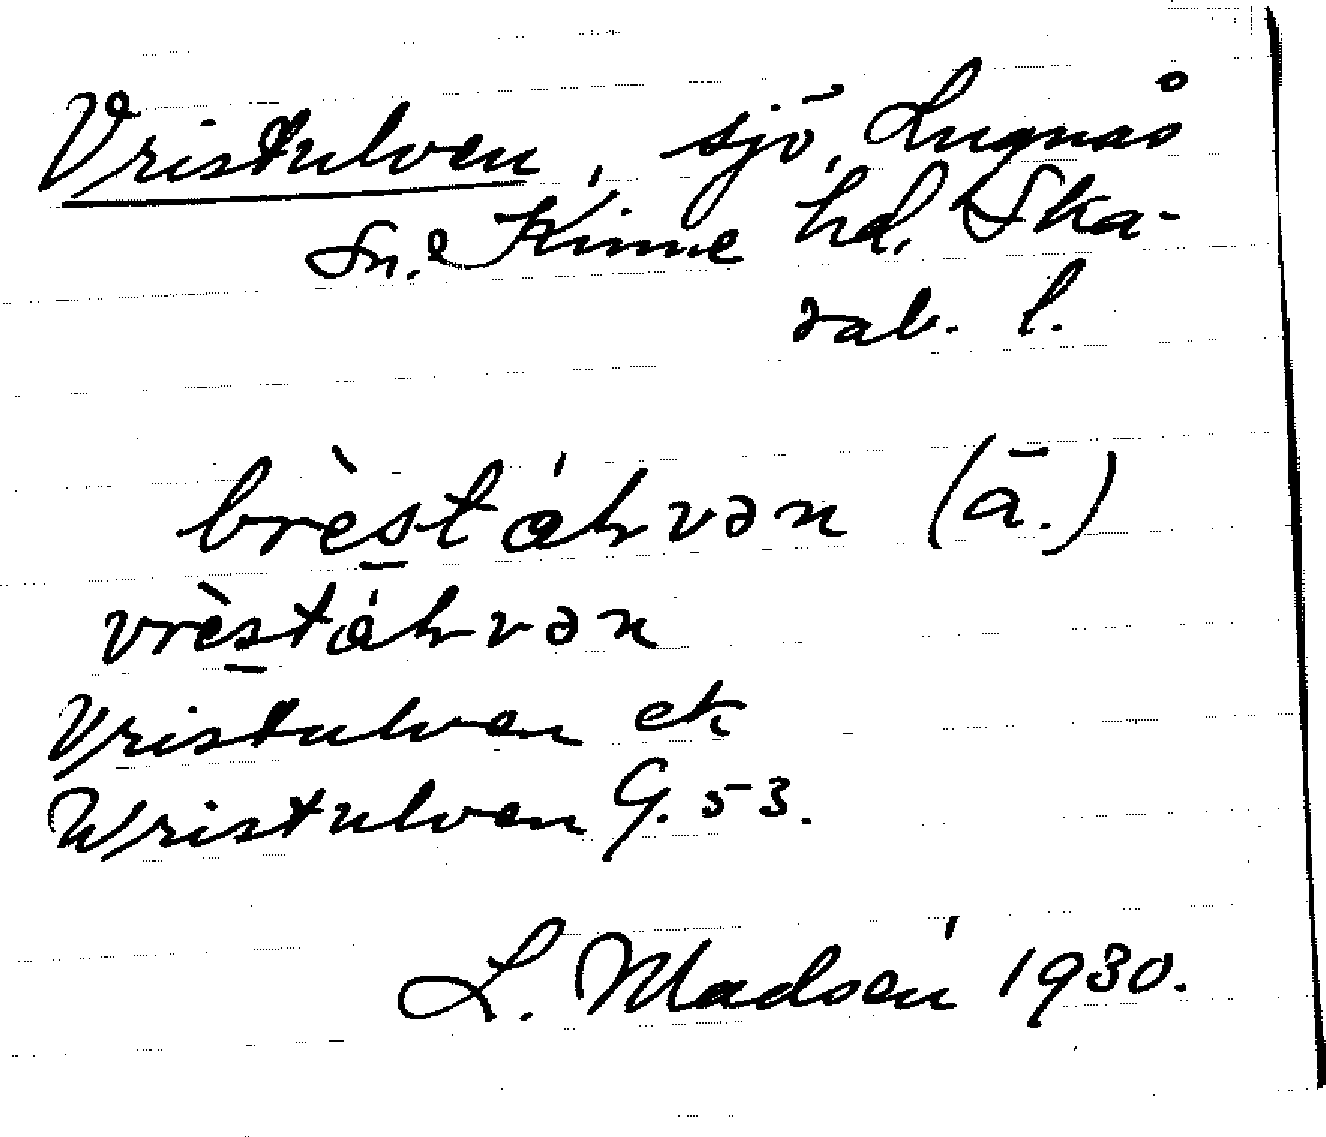 Vristulven, sjö, Lugnås
sn. Kinne hd. Ska-
rab. l.
brèstáhvən (ā.)
vrèstáhvən
Vristulven ek
Wristulven G. 53.
L. Madsén 1930.